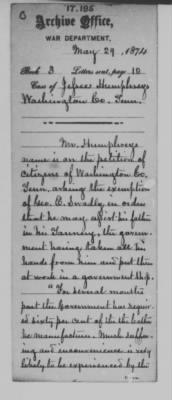 17.195
Archive Office,
WAR DEPARTMENT,
May 29, 1874
Book 3 Letters sent, page 10
Case of Jesse Humphreys
Washington Co. Tenn.
Mr. Humphreys
name is on the petition of
citizens of Washington Co.
Tenn. asking the exemption
of Geo. B. in order
that he may assist his father
in his Tannery, the govern-
ment having taken all his
hands from him and put them
at work in a government shp.
"For several months
past the Government has requir-
ed sixty per cent of the the leather
he manufacture. Much suffer-
ing and inconvenience is very
likely to be experienced by the